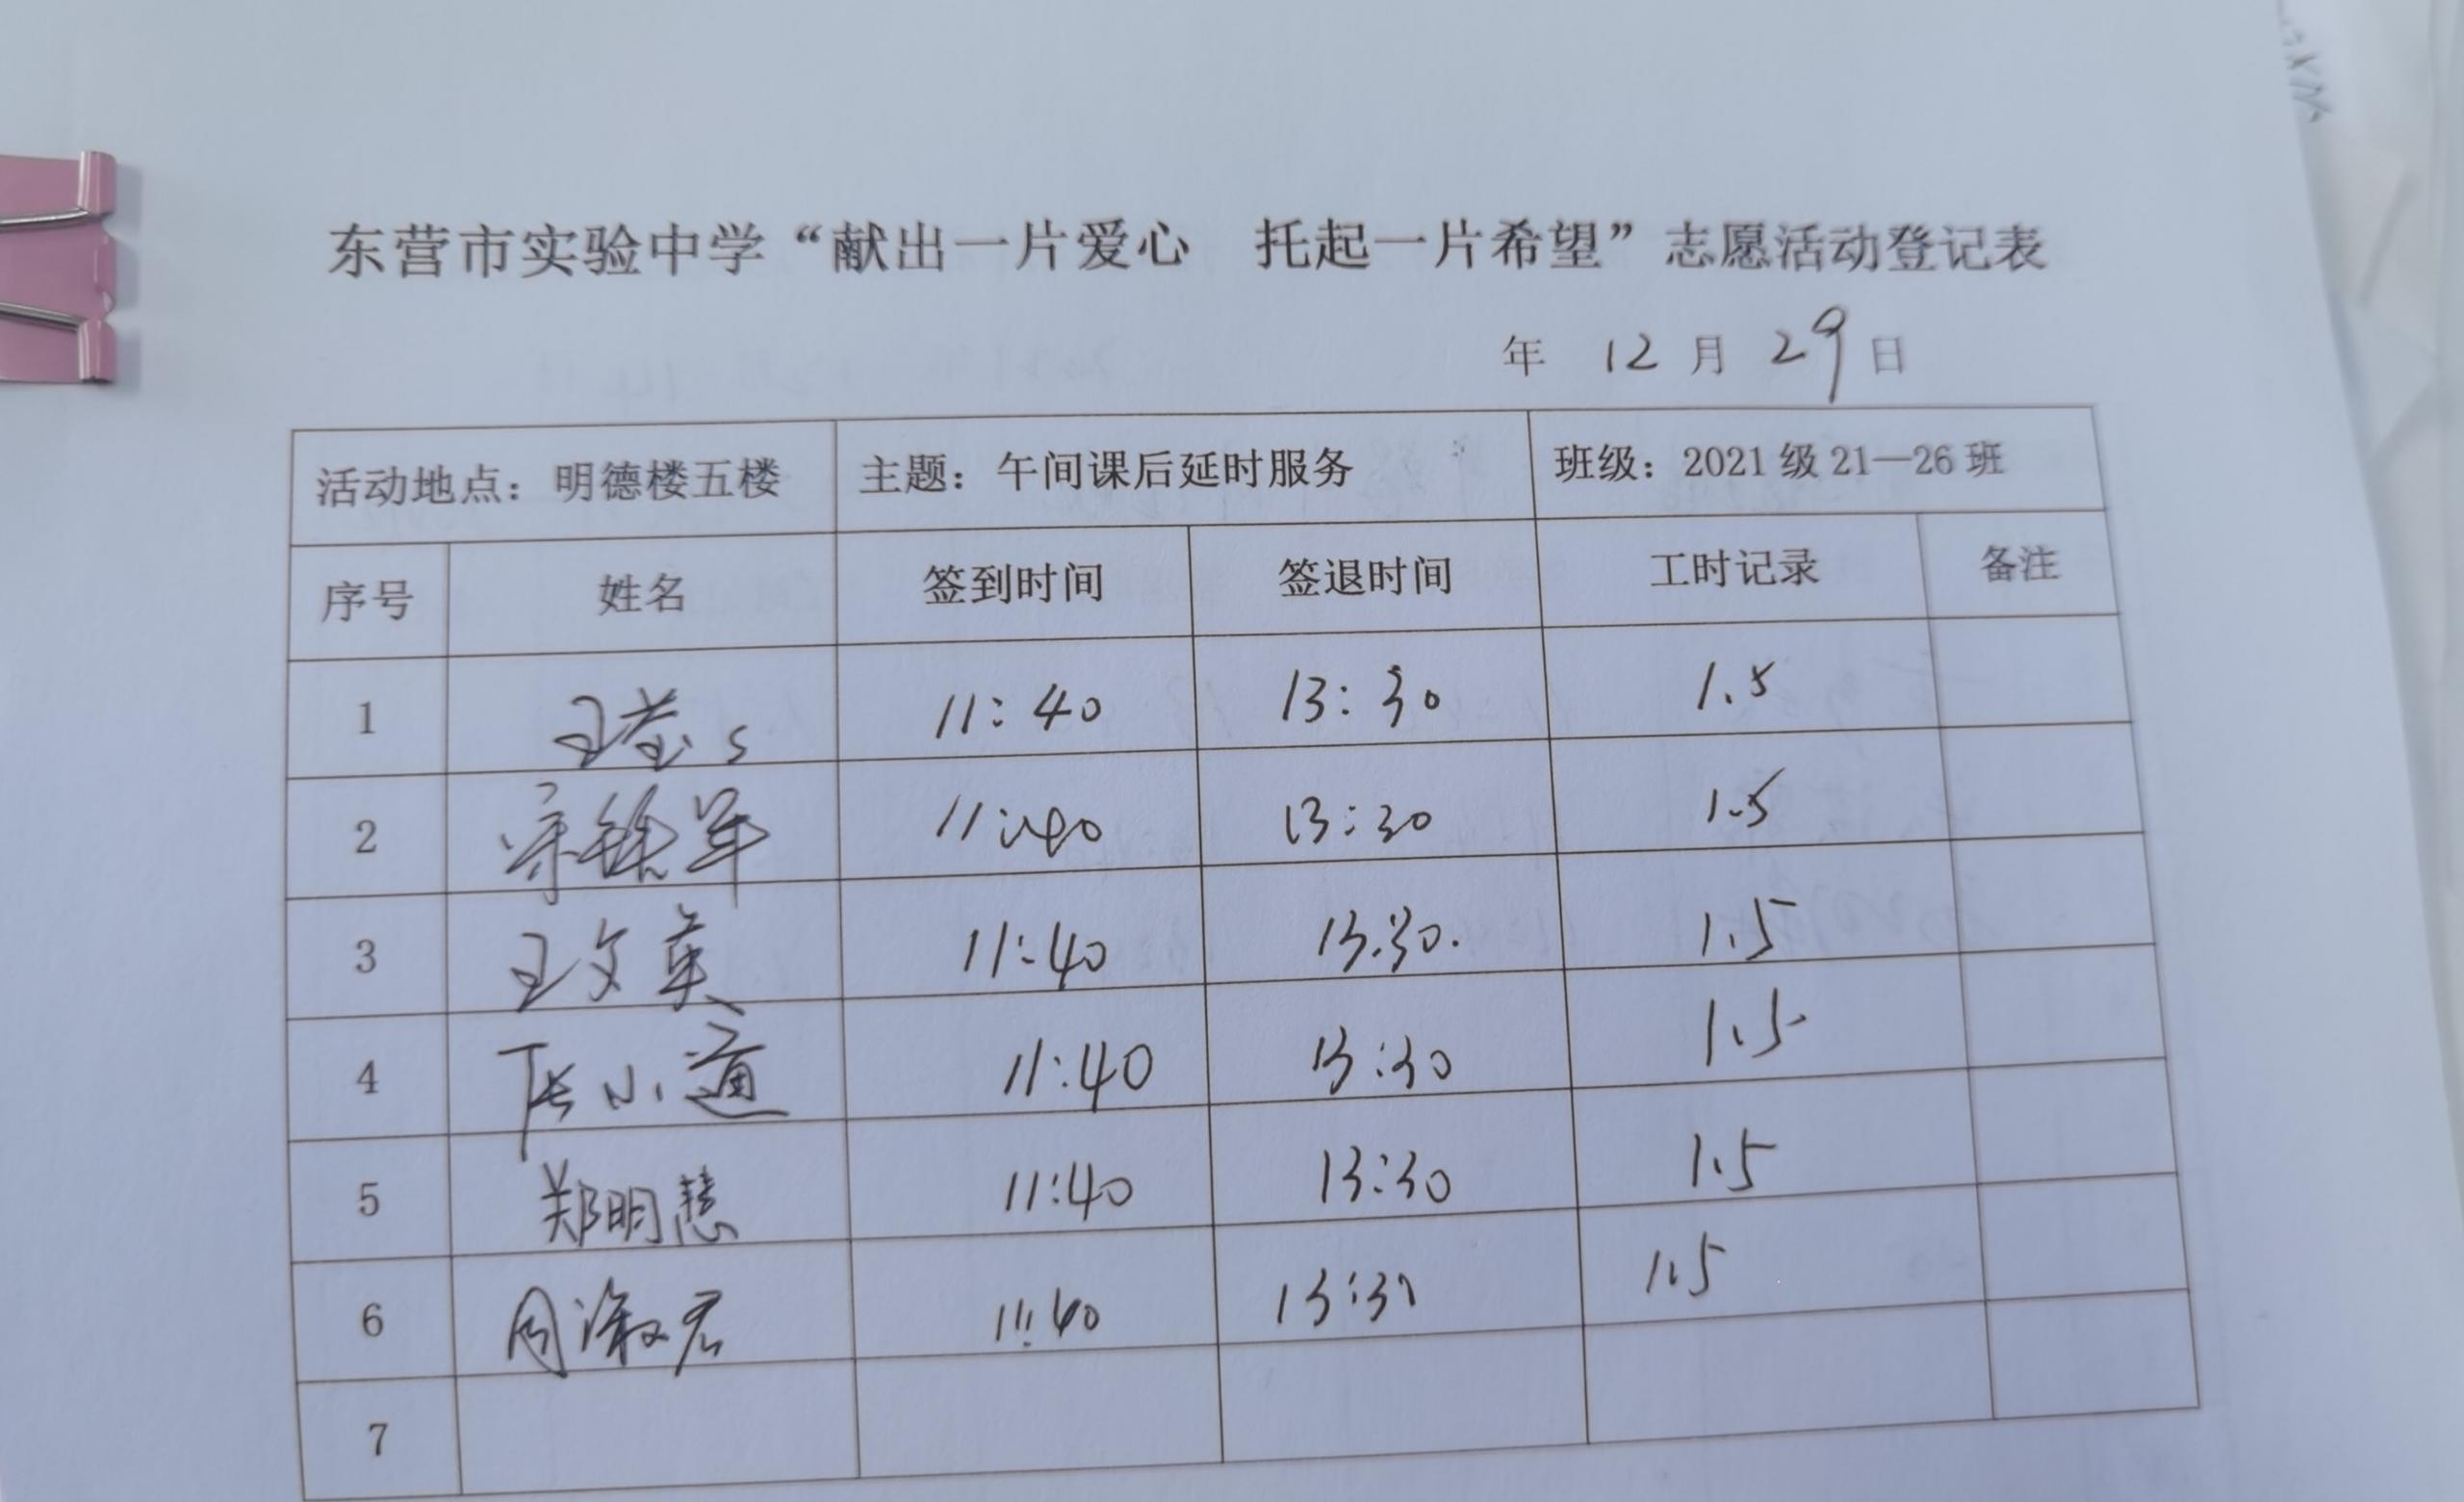 东营市实验中学“献出一片爱心 托起一片希望”志愿活动登记表
年 12 月 29 日
活动地点：明德楼五楼 主题：午间课后延时服务 班级：2021级21—26班
序号 姓名 签到时间 签退时间 工时记录 备注
1 11:40 13:30 1.5
2 11:40 13:30 1.5
3 王文英 11:40 13:30. 1.5
4 张小通 11:40 13:30 1.5
5 郑明慧 11:40 13:30 1.5
6 周淑君 11:40 13:30 1.5
7